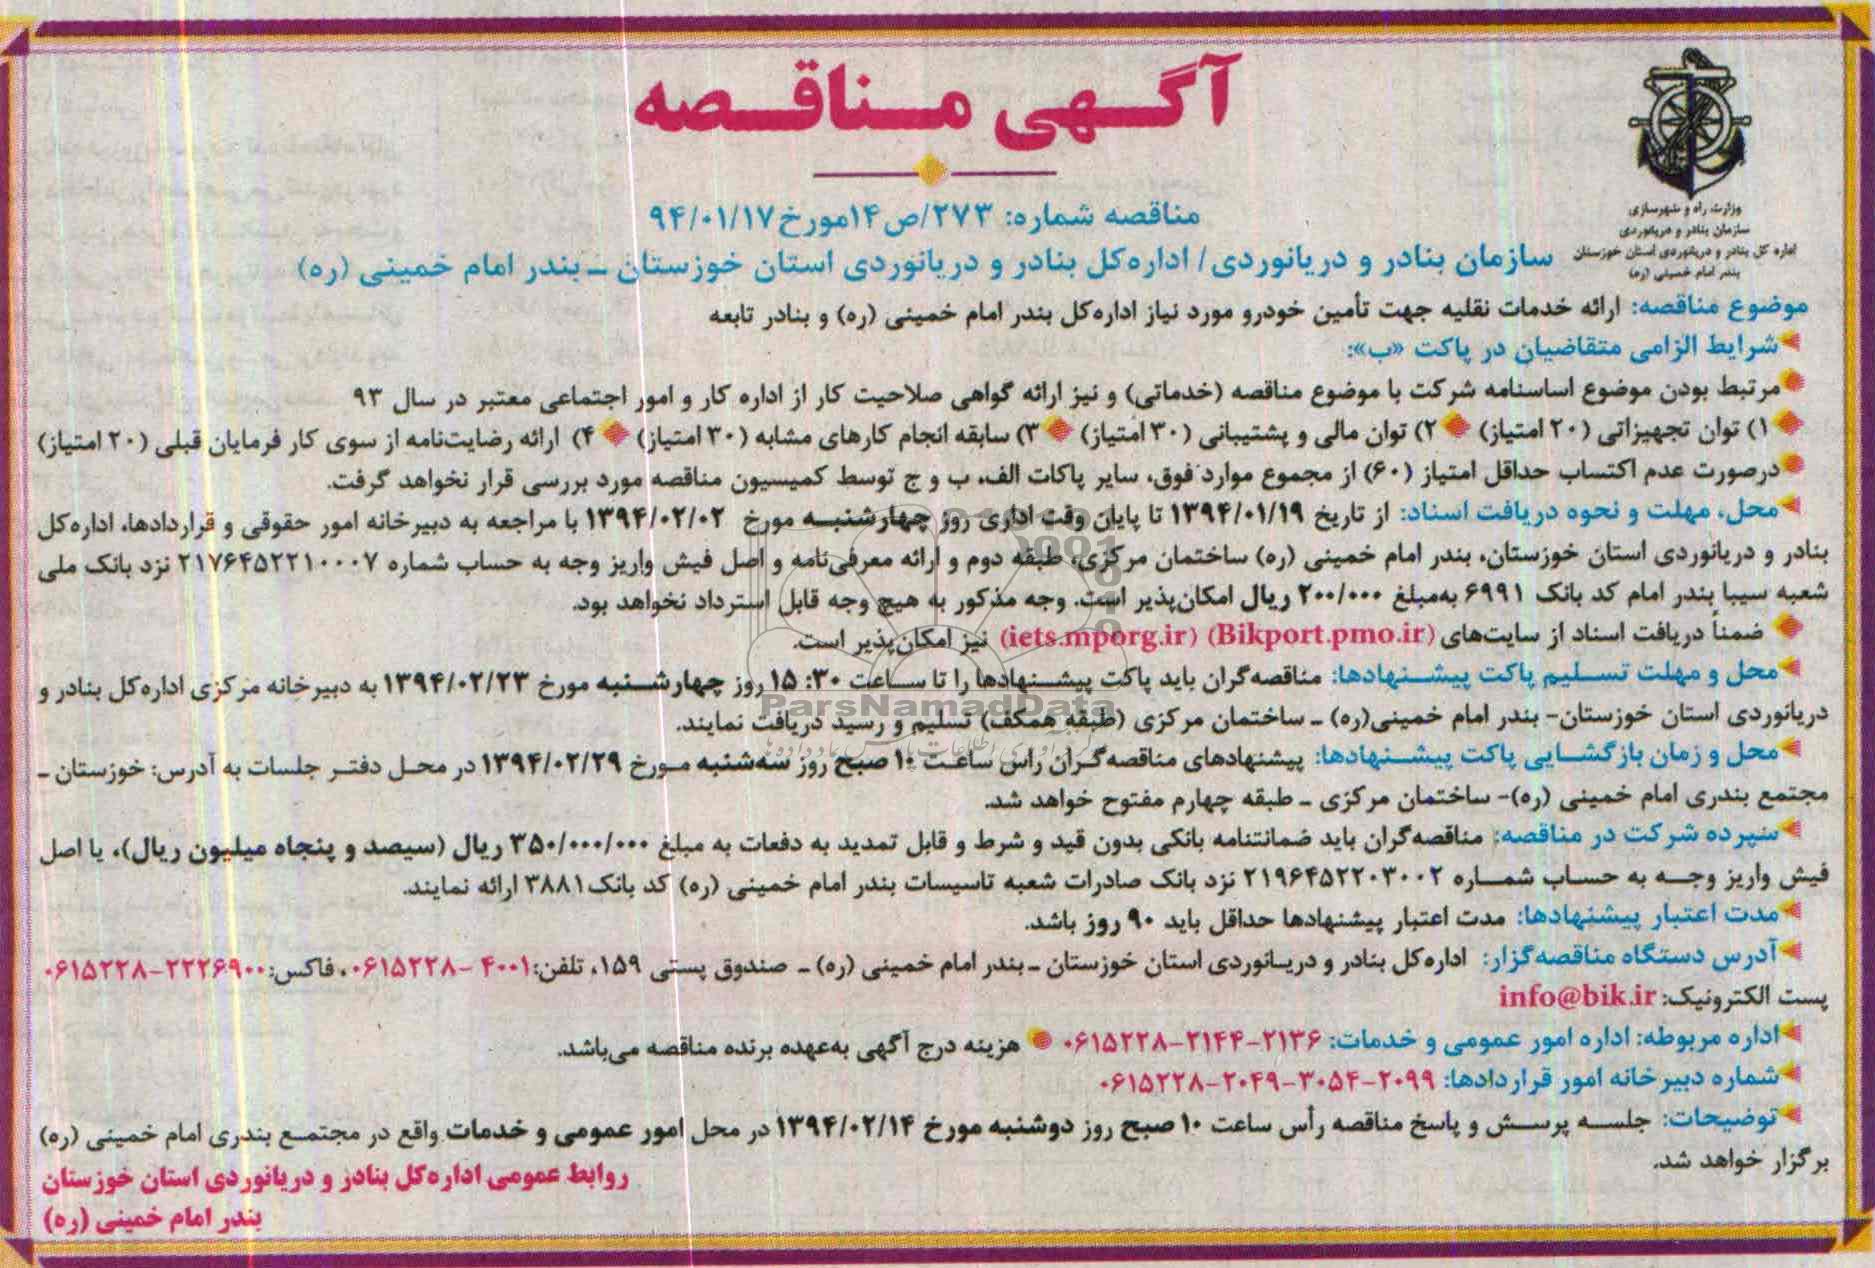 آگهی مناقصه
وزارت راه و شهرسازی
سازمان بنادر و دریانوردی
اداره کل بنادر و دریانوردی استان خوزستان
بندر امام خمینی (ره)
مناقصه شماره: ۲۷۳/ص۱۴مورخ۹۴/۰۱/۱۷
سازمان بنادر و دریانوردی/ اداره‌کل بنادر و دریانوردی استان خوزستان ـ بندر امام خمینی (ره)
موضوع مناقصه: ارائه خدمات نقلیه جهت تأمین خودرو مورد نیاز اداره‌کل بندر امام خمینی (ره) و بنادر تابعه
شرایط الزامی متقاضیان در پاکت «ب»:
مرتبط بودن موضوع اساسنامه شرکت با موضوع مناقصه (خدماتی) و نیز ارائه گواهی صلاحیت کار از اداره کار و امور اجتماعی معتبر در سال ۹۳
۱) توان تجهیزاتی (۲۰ امتیاز) ۲) توان مالی و پشتیبانی (۳۰ امتیاز) ۳) سابقه انجام کارهای مشابه (۳۰ امتیاز) ۴) ارائه رضایت‌نامه از سوی کار فرمایان قبلی (۲۰ امتیاز)
درصورت عدم اکتساب حداقل امتیاز (۶۰) از مجموع موارد فوق، سایر پاکات الف، ب و ج توسط کمیسیون مناقصه مورد بررسی قرار نخواهد گرفت.
محل، مهلت و نحوه دریافت اسناد: از تاریخ ۱۳۹۴/۰۱/۱۹ تا پایان وقت اداری روز چهارشنبه مورخ ۱۳۹۴/۰۲/۰۲ با مراجعه به دبیرخانه امور حقوقی و قراردادها، اداره‌کل
بنادر و دریانوردی استان خوزستان، بندر امام خمینی (ره) ساختمان مرکزی، طبقه دوم و ارائه معرفی‌نامه و اصل فیش واریز وجه به حساب شماره ۲۱۷۶۴۵۲۲۱۰۰۰۷ نزد بانک ملی
شعبه سیبا بندر امام کد بانک ۶۹۹۱ به‌مبلغ ۲۰۰/۰۰۰ ریال امکان‌پذیر است. وجه مذکور به هیچ وجه قابل استرداد نخواهد بود.
ضمناً دریافت اسناد از سایت‌های (Bikport.pmo.ir) (iets.mporg.ir) نیز امکان‌پذیر است.
محل و مهلت تسلیم پاکت پیشنهادها: مناقصه‌گران باید پاکت پیشنهادها را تا ساعت ۱۵:۳۰ روز چهارشنبه مورخ ۱۳۹۴/۰۲/۲۳ به دبیرخانه مرکزی اداره‌کل بنادر و
ParsNamadData
دریانوردی استان خوزستان- بندر امام خمینی(ره) ـ ساختمان مرکزی (طبقه همکف) تسلیم و رسید دریافت نمایند.
محل و زمان بازگشایی پاکت پیشنهادها: پیشنهادهای مناقصه‌گران راس ساعت ۱۰ صبح روز سه‌شنبه مورخ ۱۳۹۴/۰۲/۲۹ در محل دفتر جلسات به آدرس: خوزستان ـ
مجتمع بندری امام خمینی (ره)- ساختمان مرکزی ـ طبقه چهارم مفتوح خواهد شد.
سپرده شرکت در مناقصه: مناقصه‌گران باید ضمانتنامه بانکی بدون قید و شرط و قابل تمدید به دفعات به مبلغ ۳۵۰/۰۰۰/۰۰۰ ریال (سیصد و پنجاه میلیون ریال)، یا اصل
فیش واریز وجه به حساب شماره ۲۱۹۶۴۵۲۲۰۳۰۰۲ نزد بانک صادرات شعبه تاسیسات بندر امام خمینی (ره) کد بانک۳۸۸۱ ارائه نمایند.
مدت اعتبار پیشنهادها: مدت اعتبار پیشنهادها حداقل باید ۹۰ روز باشد.
آدرس دستگاه مناقصه‌گزار: اداره‌کل بنادر و دریانوردی استان خوزستان ـ بندر امام خمینی (ره) ـ صندوق پستی ۱۵۹، تلفن:۴۰۰۱ -۰۶۱۵۲۲۸، فاکس:۲۲۲۶۹۰۰-۰۶۱۵۲۲۸
پست الکترونیک: info@bik.ir
اداره مربوطه: اداره امور عمومی و خدمات: ۲۱۳۶-۲۱۴۴-۰۶۱۵۲۲۸ هزینه درج آگهی به‌عهده برنده مناقصه می‌باشد.
شماره دبیرخانه امور قراردادها: ۲۰۹۹-۳۰۵۴-۲۰۴۹-۰۶۱۵۲۲۸
توضیحات: جلسه پرسش و پاسخ مناقصه رأس ساعت ۱۰ صبح روز دوشنبه مورخ ۱۳۹۴/۰۲/۱۴ در محل امور عمومی و خدمات واقع در مجتمع بندری امام خمینی (ره)
برگزار خواهد شد.
روابط عمومی اداره‌کل بنادر و دریانوردی استان خوزستان
بندر امام خمینی (ره)